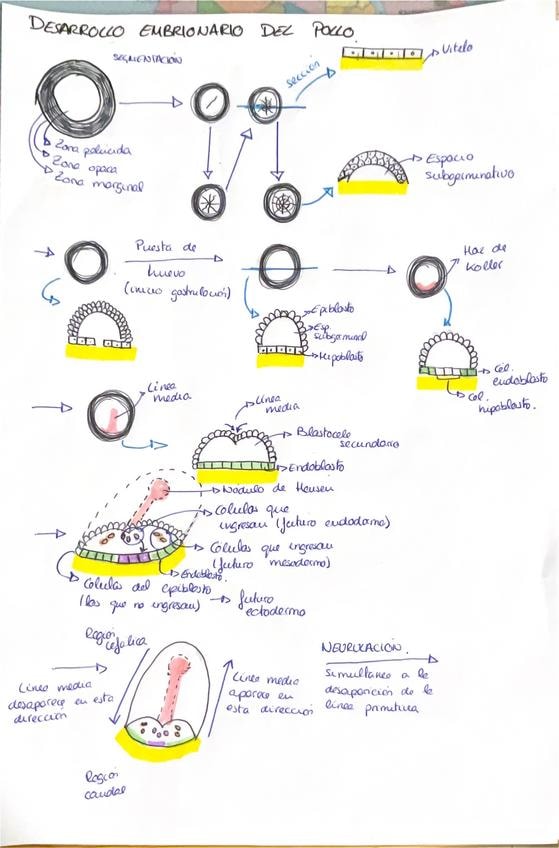 DESARROLLO EMBRIONARIO DEL POLLO.
SEGMENTACIÓN
sección
Vitelo
Zona pelúcida
Zona opaca
Zona marginal
Espacio
subgerminativo
Puesta de
huevo
(inicio gastrulación)
Hoz de
Koller
Epiblasto
Esp.
subgerminal
Hipoblasto
Cél.
endoblasto
Cél.
hipoblasto.
Línea
media
Línea
media
Blastocele
secundario
Endoblasto
Nódulo de Hensen
Células que
ingresan (futuro endodermo)
Células que ingresan
(futuro mesodermo)
Endoblasto.
Células del epiblasto
(las que no ingresan) → futuro
ectodermo
Región
cefálica
Línea media
desaparece en esta
dirección
Línea media
aparece en
esta dirección
NEURULACIÓN.
simultáneo a la
desaparición de la
línea primitiva
Región
caudal